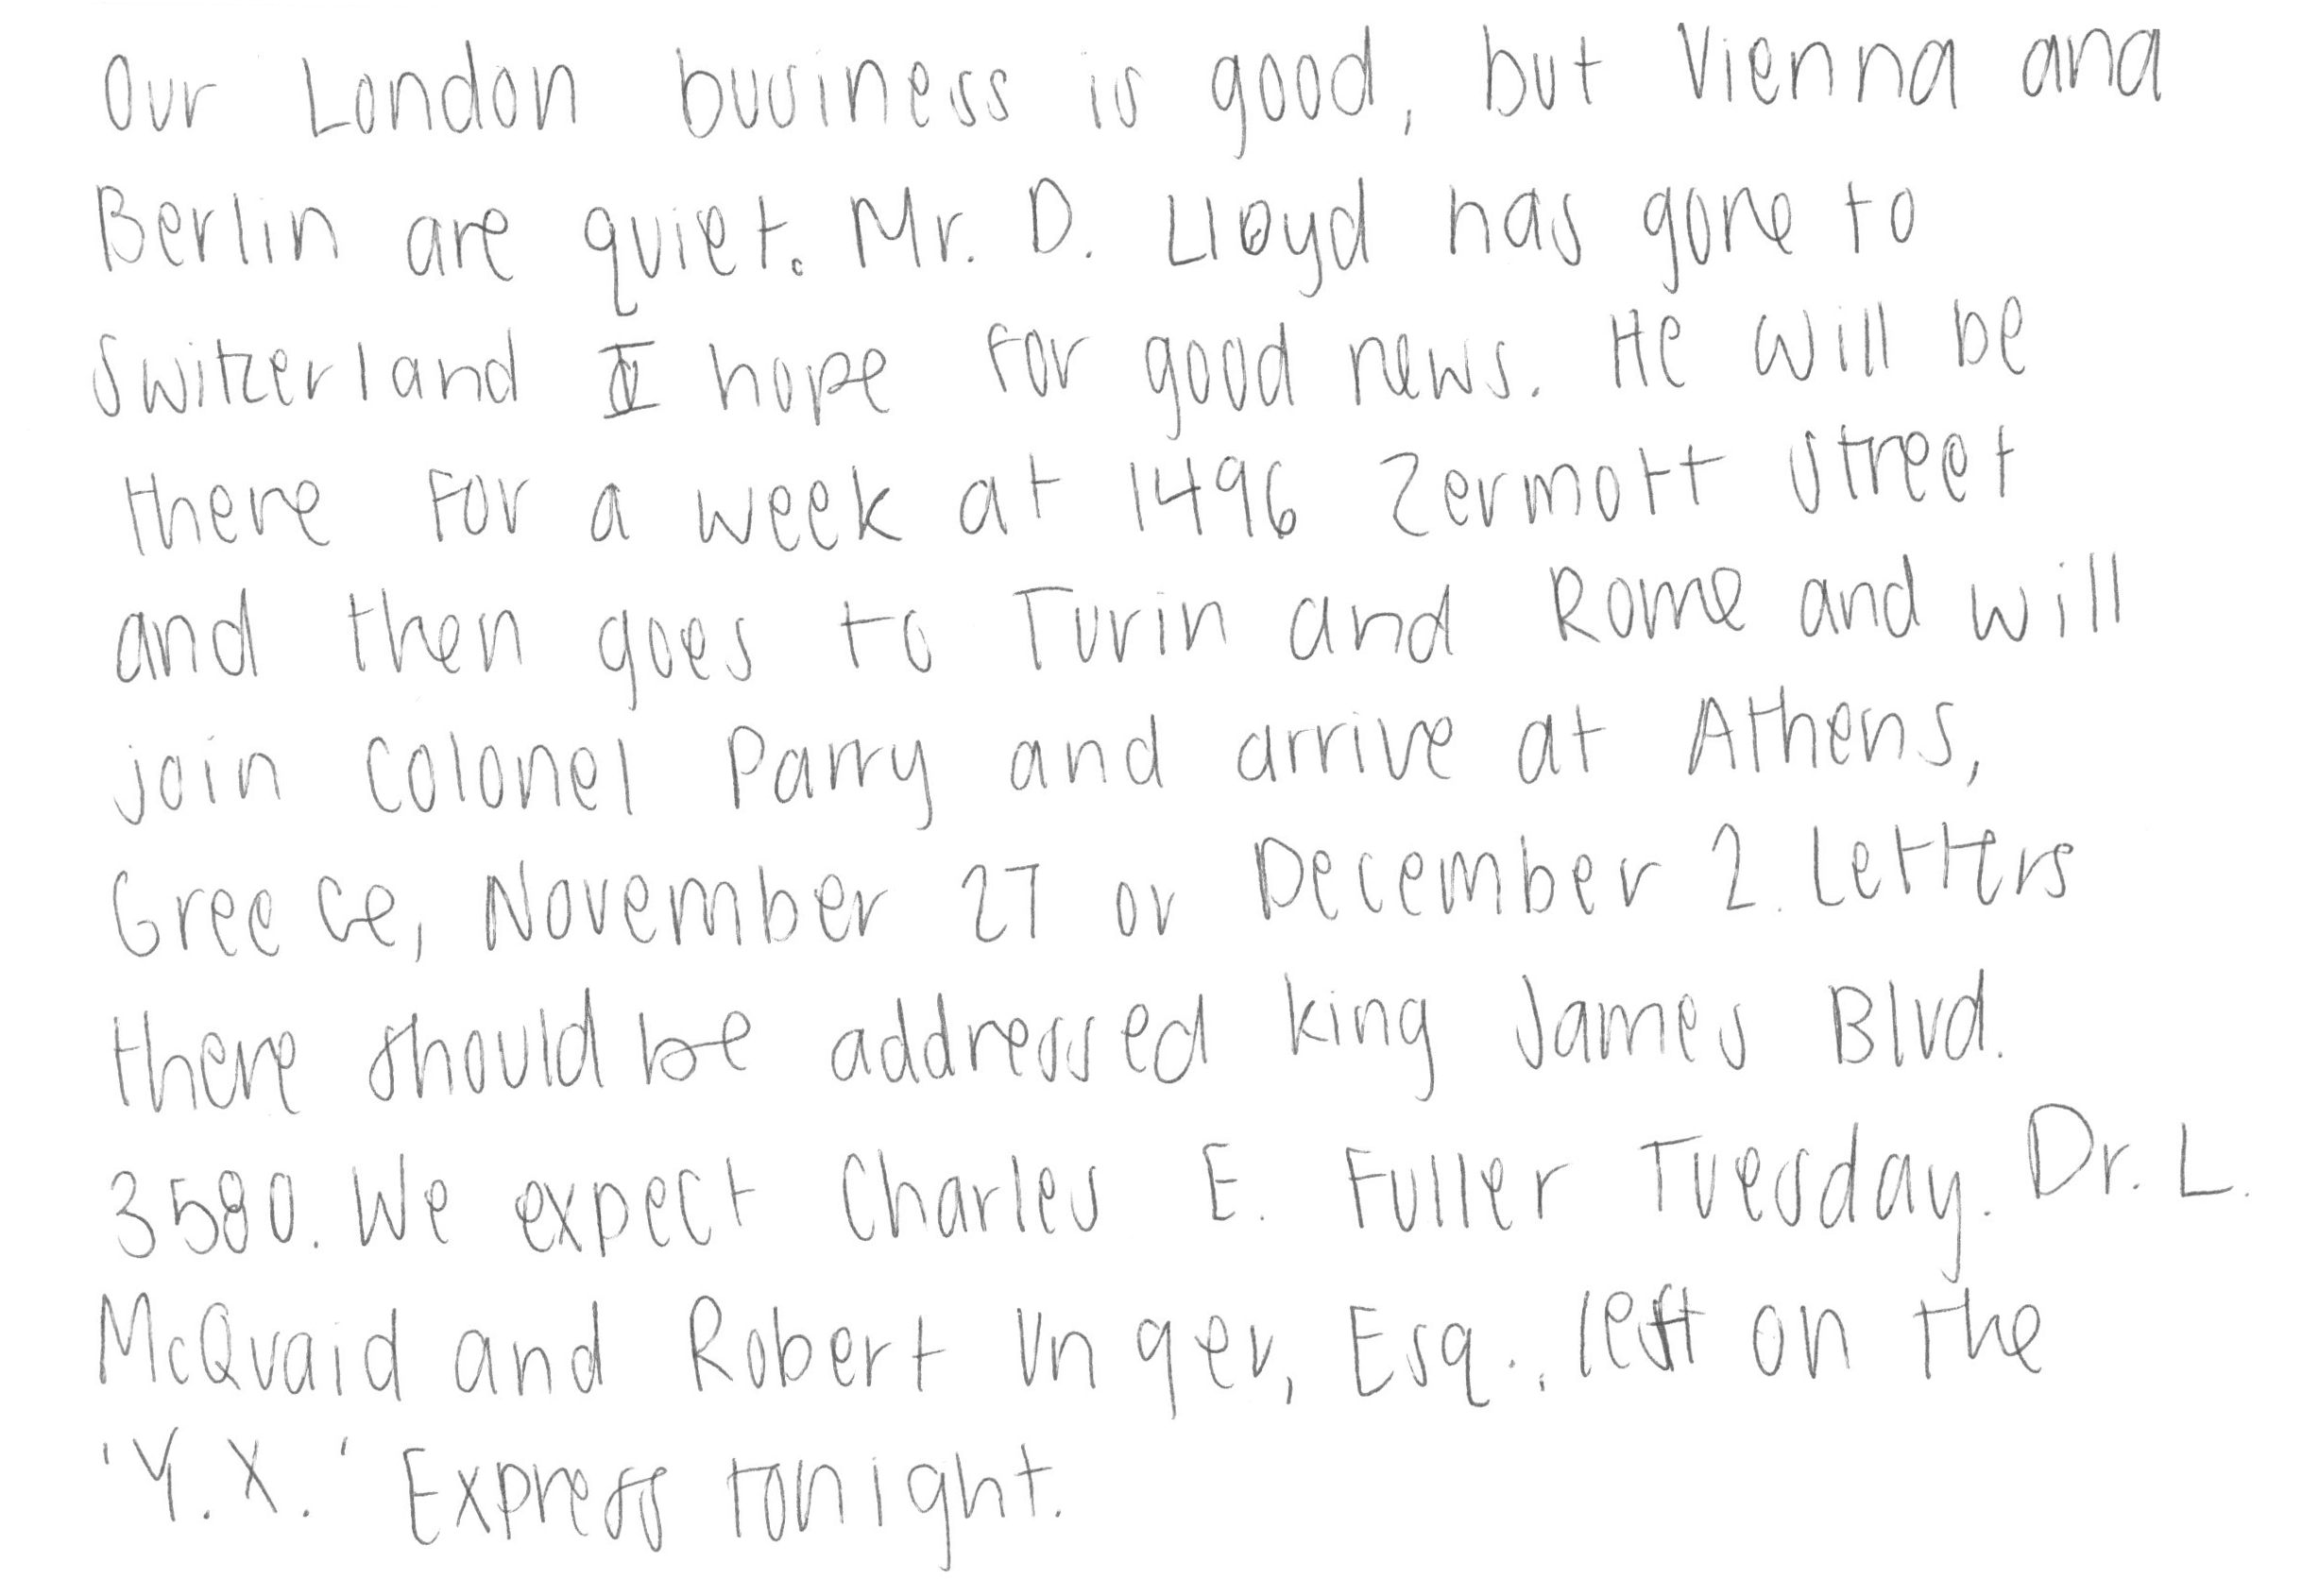 Our London business is good, but Vienna and
Berlin are quiet. Mr. D. Lloyd has gone to
Switzerland I hope for good news. He will be
there for a week at 1496 Zermott street
and then goes to Turin and Rome and will
join Colonel Parry and arrive at Athens,
Greece, November 27 or December 2. Letters
there should be addressed king James Blvd.
3580. We expect Charles E. Fuller Tuesday. Dr. L.
McQuaid and Robert Unger, Esq., left on the
'Y. X.' Express tonight.